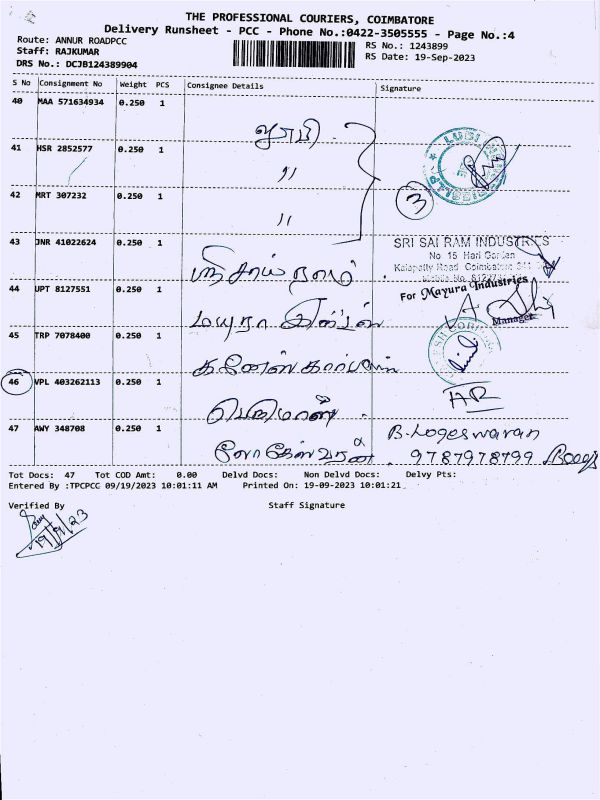 THE PROFESSIONAL COURIERS, COIMBATORE
Delivery Runsheet - PCC - Phone No.:0422-3505555 - Page No.:4
Route: ANNUR ROADPCC
RS No.: 1243899
Staff: RAJKUMAR
RS Date: 19-Sep-2023
DRS No.: DCJB124389904
S No Consignment No Weight PCS Consignee Details Signature
40 MAA 571634934 0.250 1
41 HSR 2852577 0.250 1 〃
42 MRT 307232 0.250 1 〃
3
43 JNR 41022624 0.250 1
SRI SAI RAM INDUSTRIES
No 15 Hari Garden
Kalapatty Road Coimbatore
44 UPT 8127551 0.250 1 மயூரா
For Mayura Industries
Manager
45 TRP 7078400 0.250 1 கனேஸ் கார்
46 VPL 403262113 0.250 1 பெருமாள்
47 AWY 348708 0.250 1 லோகேஸ்வரன் B. Logeswaran
9787978799
Tot Docs: 47 Tot COD Amt: 0.00 Delvd Docs: Non Delvd Docs: Delvy Pts:
Entered By :TPCPCC 09/19/2023 10:01:11 AM Printed On: 19-09-2023 10:01:21
Verified By Staff Signature
19/9/23